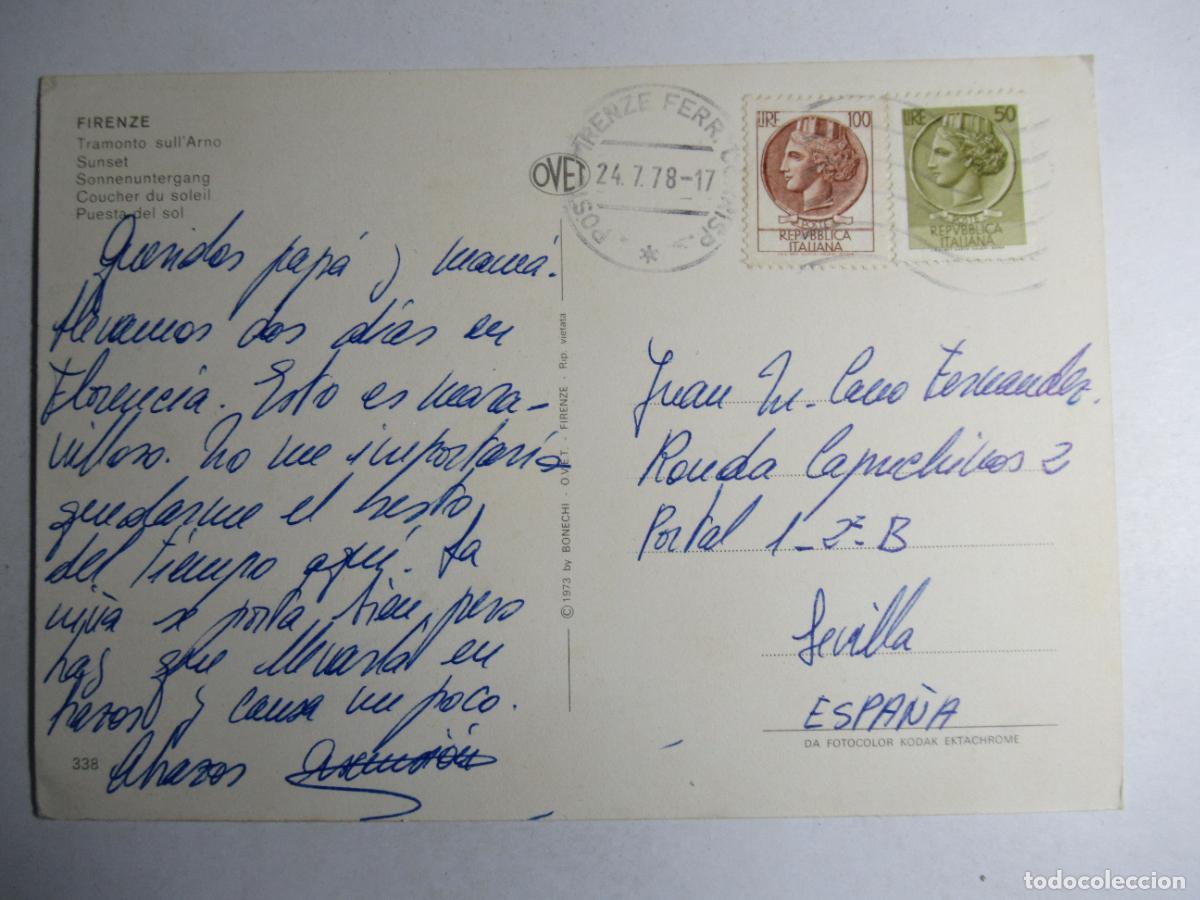 FIRENZE
Tramonto sull'Arno
Sunset
Sonnenuntergang
Coucher du soleil
Puesta del sol
Queridos papá y mamá.
Llevamos dos días en
Florencia. Esto es mara-
villoso. No me importaría
quedarme el resto
del tiempo aquí. La
niña se porta bien, pero
hay que llevarla en
brazos y cansa un poco.
Abrazos Asunción
338
© 1973 by BONECHI - OVET - FIRENZE - Rip. vietata
OVET
FIRENZE FERR.
24.7.78-17
LIRE 100
POSTE
REPVBBLICA
ITALIANA
LIRE 50
POSTE
REPVBBLICA
ITALIANA
Juan M. Cano Fernandez.
Ronda Capuchinos 2
Portal 1-2º-B
Sevilla
ESPAÑA
DA FOTOCOLOR KODAK EKTACHROME
todocoleccion